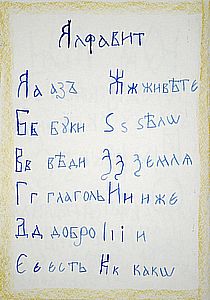 Ялфавит
Яа азъ Жж живѣте
Бв буки Ѕѕ ѕѣлѡ
Вв вѣди Ꙁꙁ ꙁемлѧ
Гг глаголь Ии иже
Дд добро Іıі и
Єє есть Кк какѡ